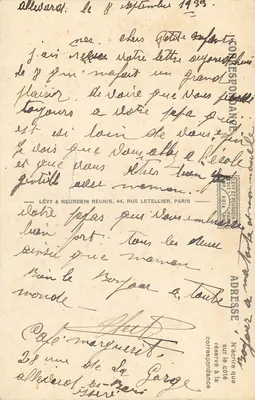 allevard. le 8 septembre 1933
mes chers petits enfants
j'ai reçus votre lettre aujourd'hui
de 8 qui m'a fait un grand
plaisir de voire que vous
toujours a votre papa qui
est si loin de vous
je vois que vous allez a l'école
et que vous êtes bien
gentille avec maman.
LÉVY & NEURDEIN RÉUNIS, 44, RUE LETELLIER, PARIS
votre papa qui vous embrasse
bien fort tous les deux
ainsi que maman.
Bien le Bonjour a toute
monde
Café marguerit
28 rue de la Gorge
allevard les Bains
Isère
CORRESPONDANCE
ADRESSE
N'écrire que
sur le côté
réservé à la
correspondance